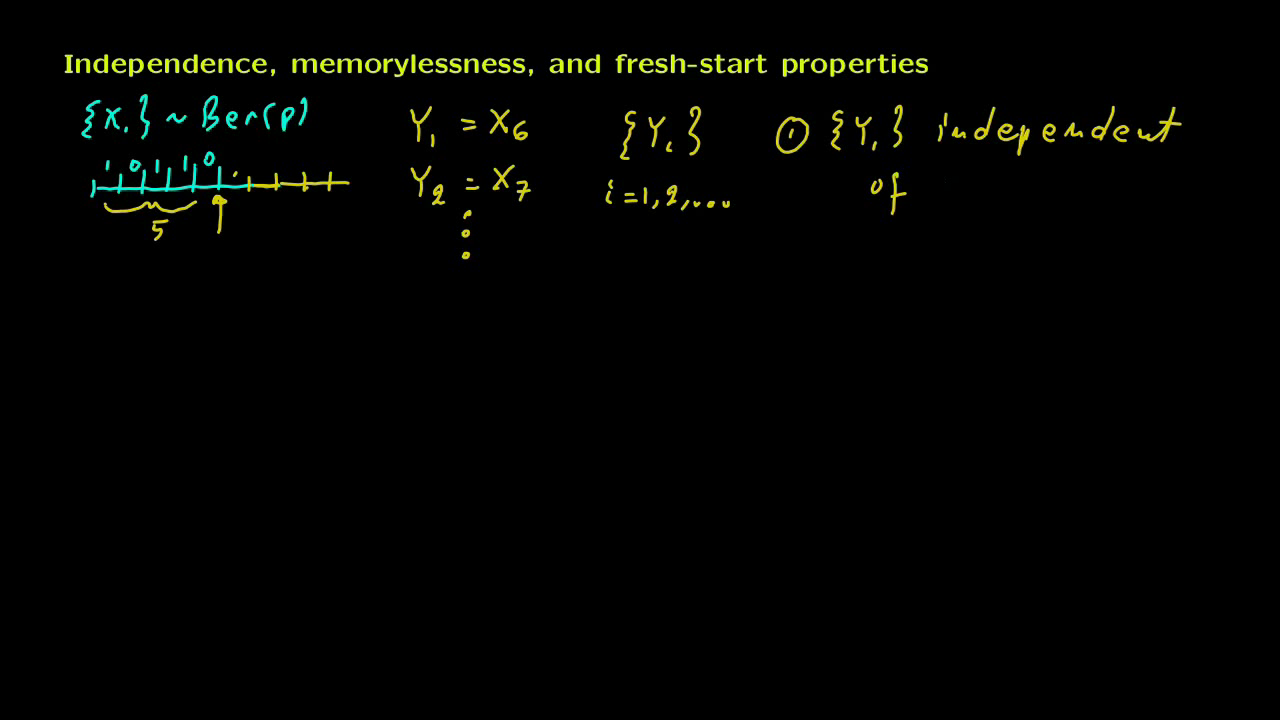 Independence, memorylessness, and fresh-start properties
{X_i} ~ Ber(p)
1 0 1 1 0
5
Y_1 = X_6
Y_2 = X_7
{Y_i}
i = 1, 2, ...
① {Y_i} independent
of